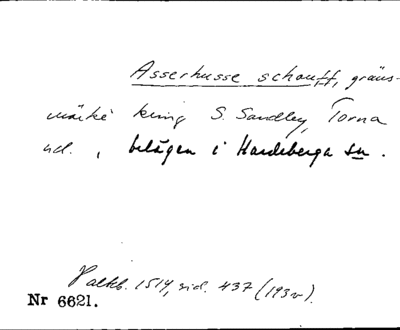 Asserhusse schouff, gräns-
märke kring S. Sandby, Torna
hd., belägen i Hardeberga sn.
Palkb. 1514, sid. 437 (193v).
Nr 6621.